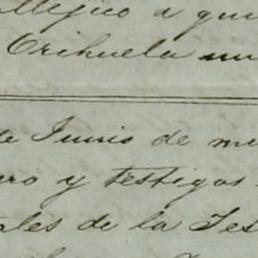 Méjico a qui
Orihuela
de Junio de mi
ro y testigos
ales de la Tes